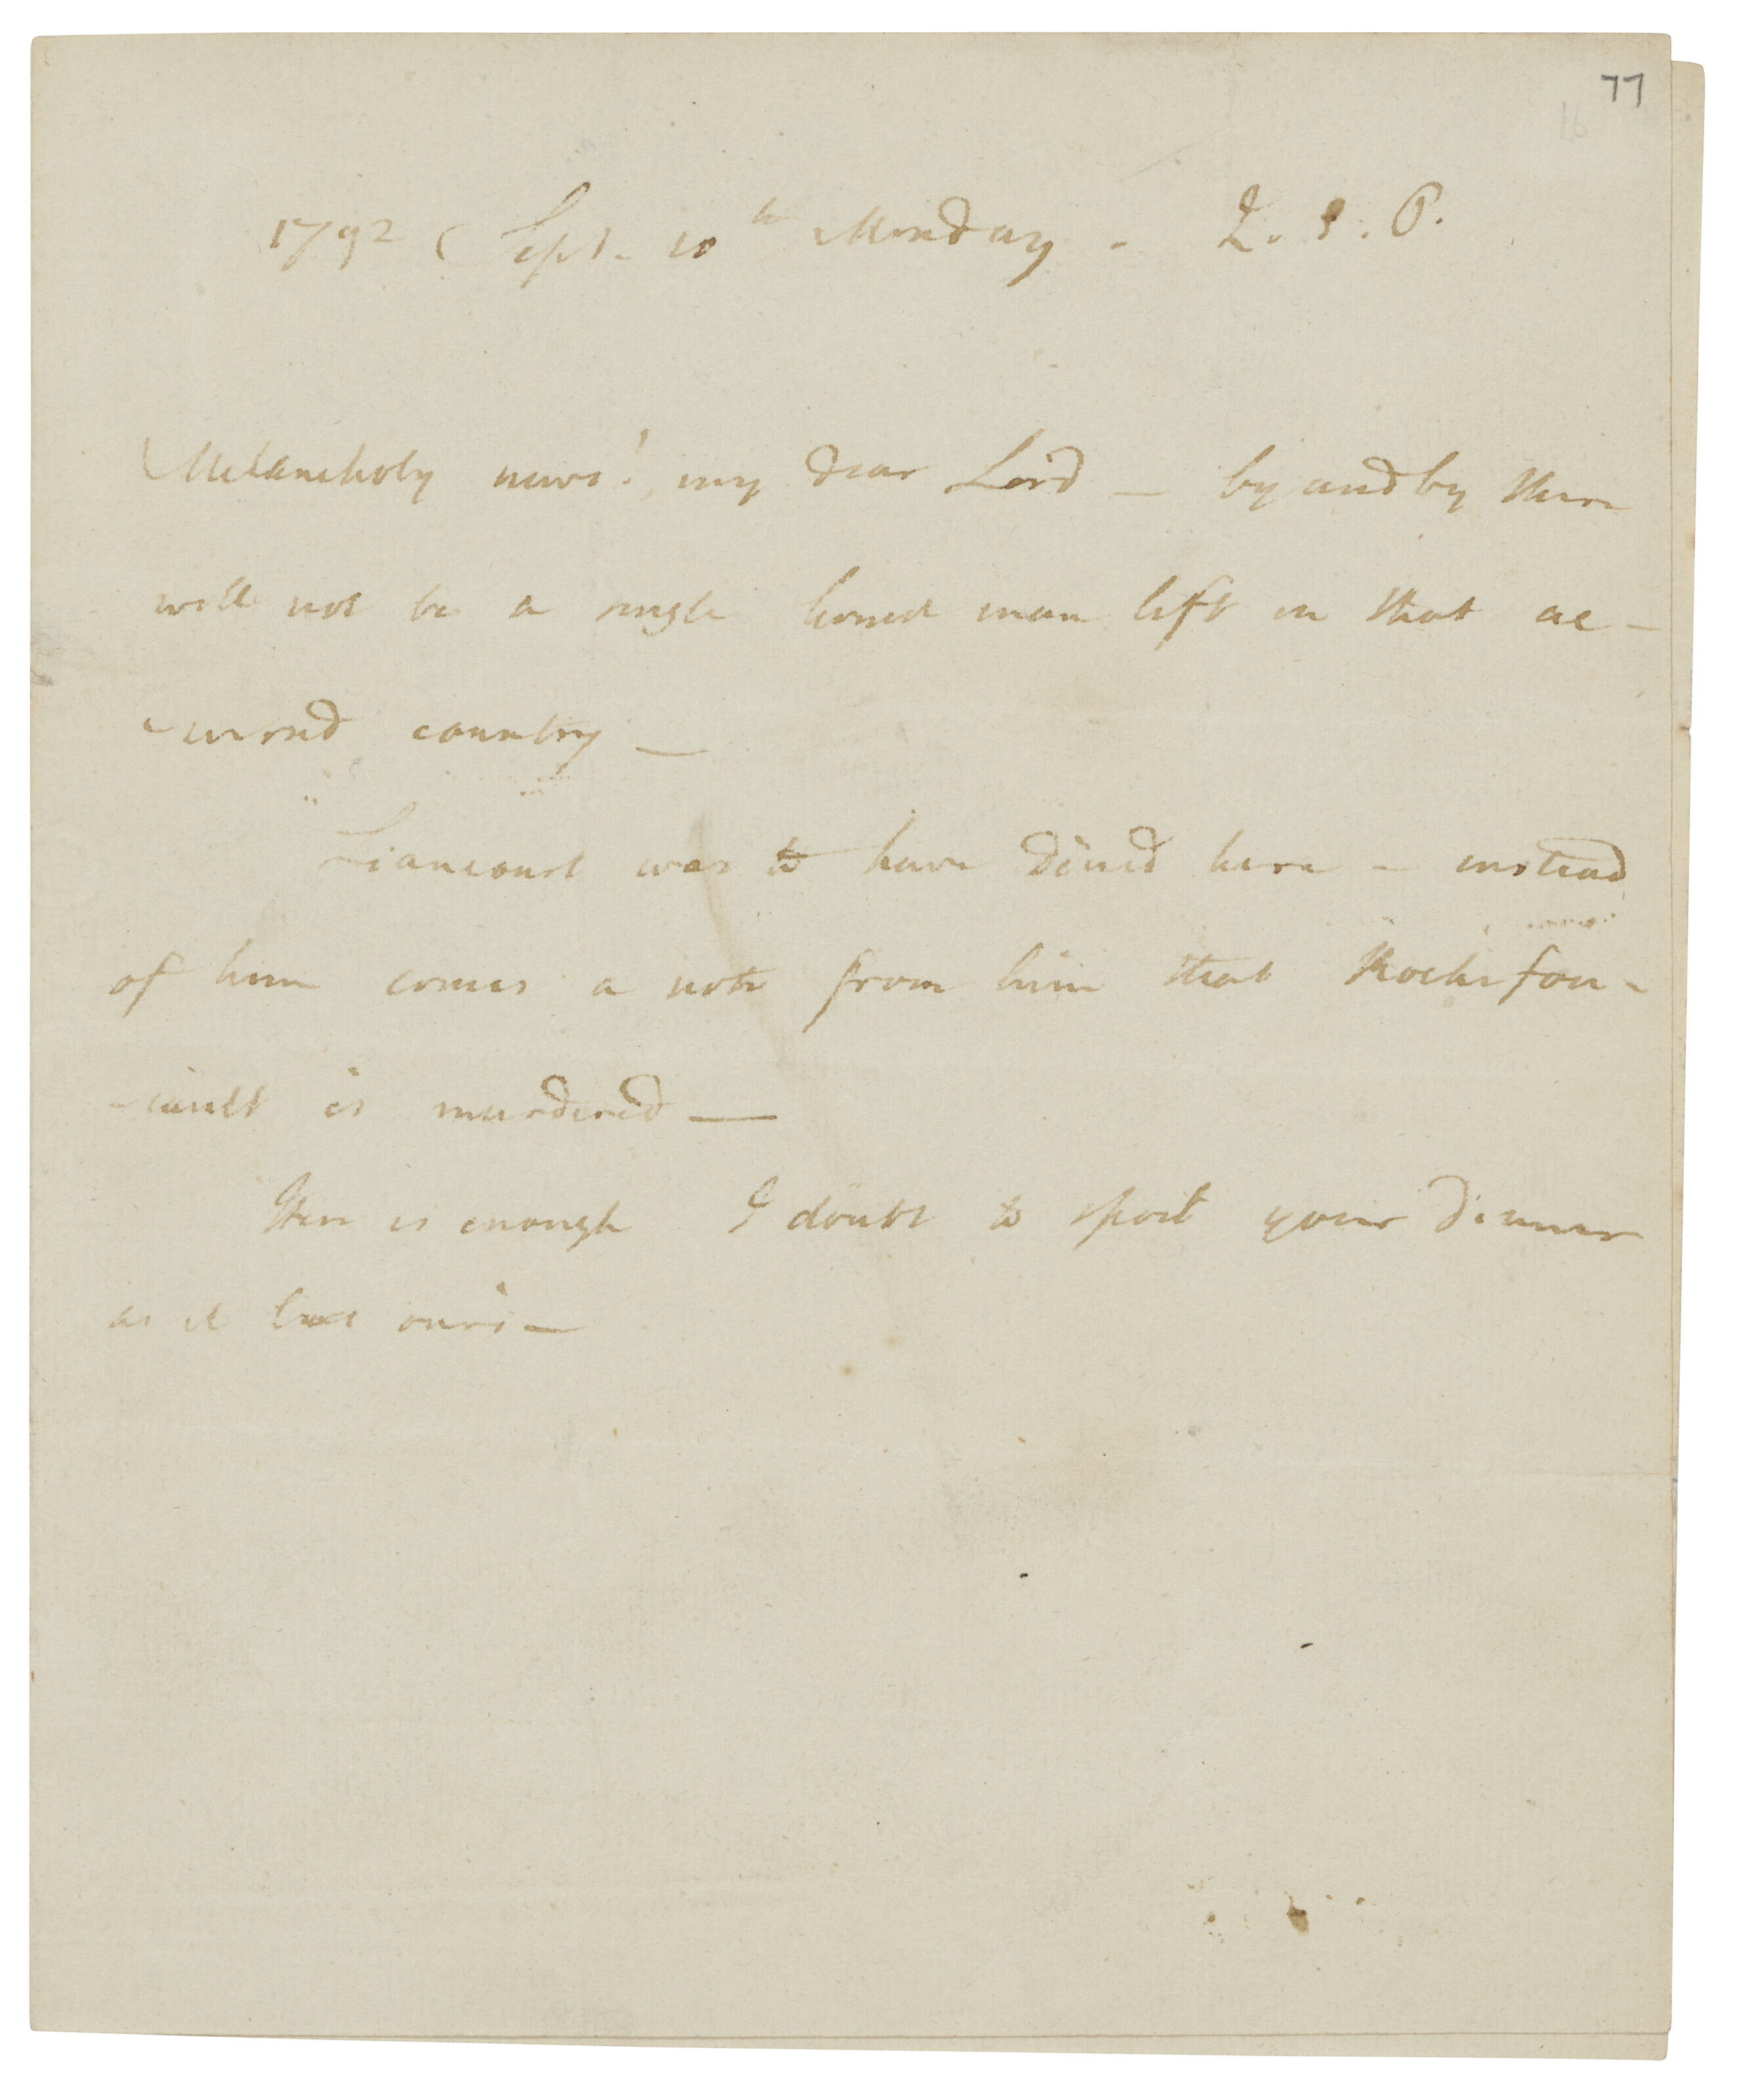 77
1792 Sept. 10th Monday - Q. S. P.
Melancholy news! my dear Lord — by and by there
will not be a single honest man left in that ac-
-cursed country —
Liancourt was to have dined here - instead
of him comes a note from him that Rochefou-
-cault is murdered —
Here is enough I doubt to spoil your dinner
as it has ours —